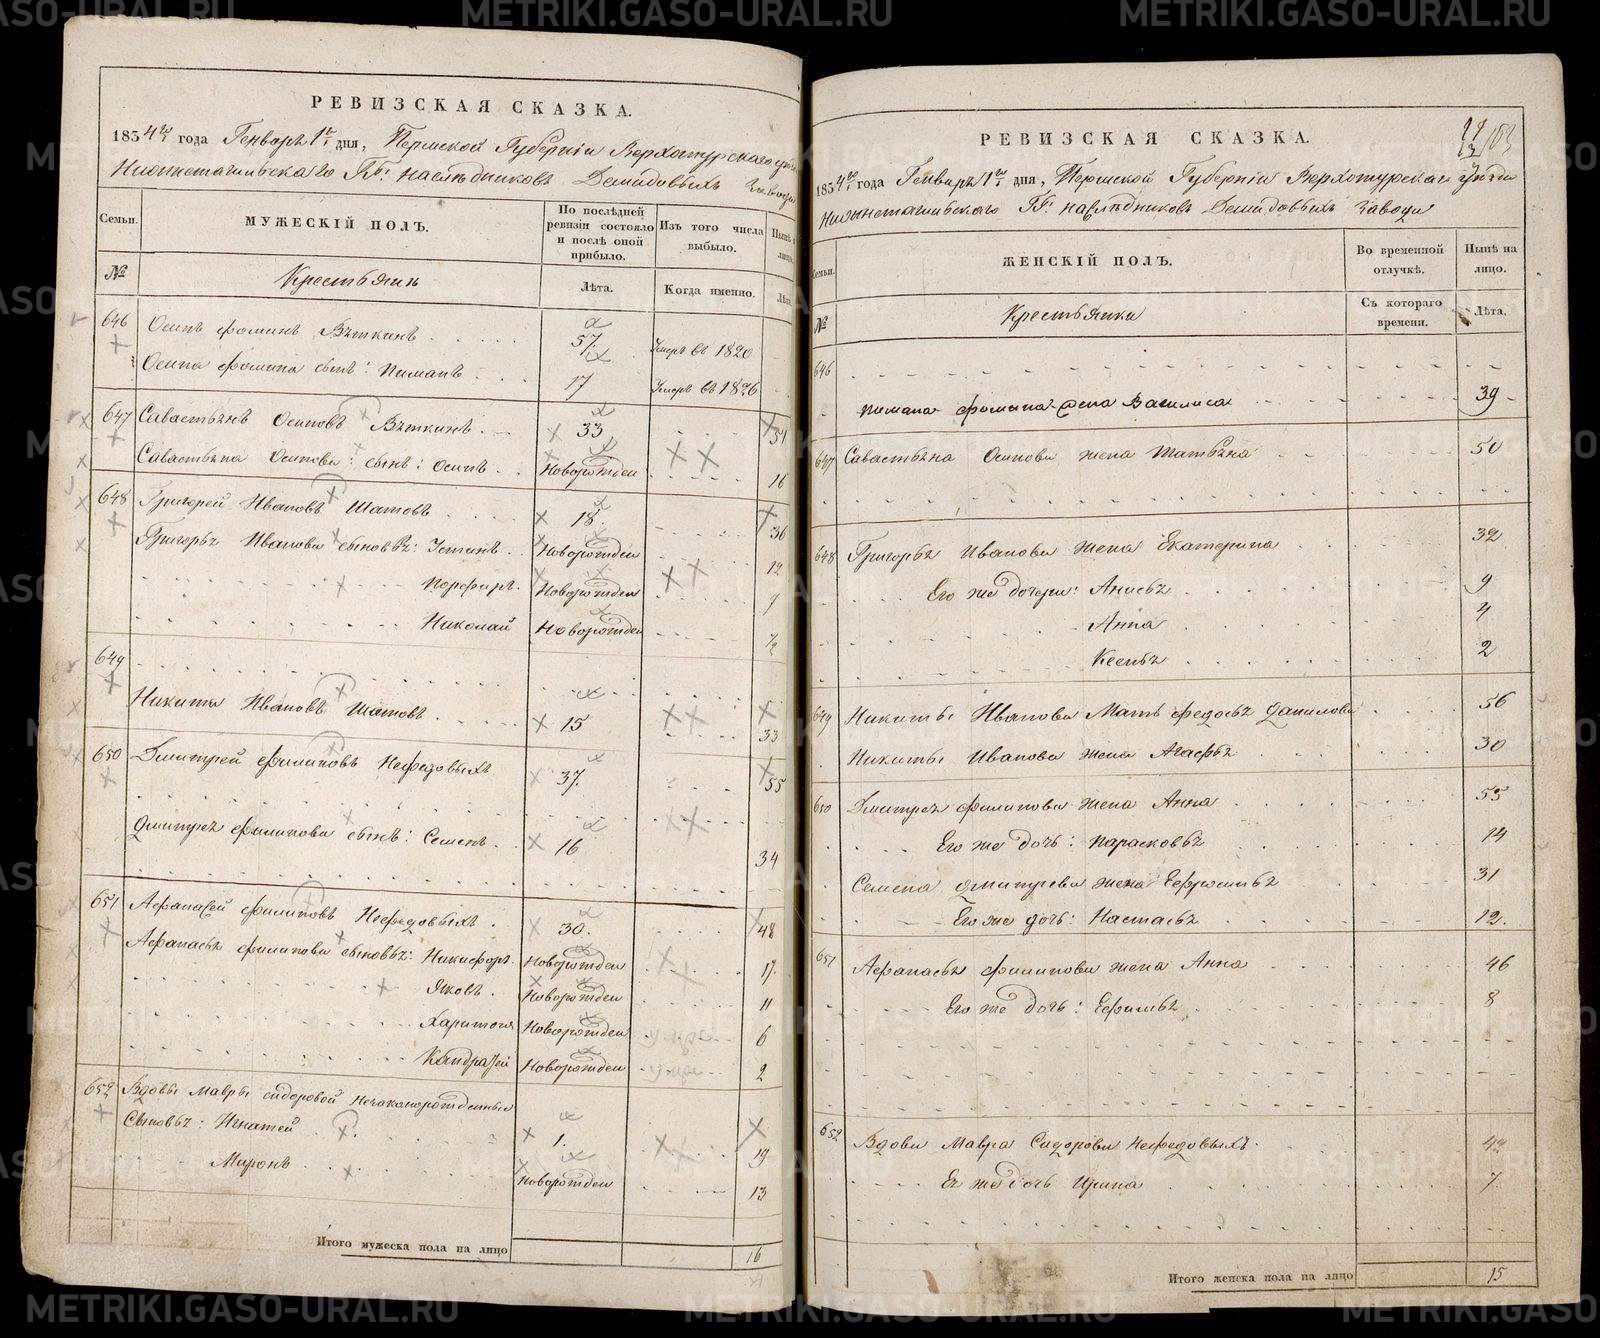 РЕВИЗСКАЯ СКАЗКА.
1834го года Генваря 1го дня, Пермской Губерніи Верхотурскаго уѣзда
Нижнетагильскаго ГГ: наслѣдниковъ Демидовыхъ завода
Семьи.
МУЖЕСКІЙ ПОЛЪ.
По послѣдней ревизіи состояло и послѣ оной прибыло.
Изъ того числа выбыло.
Нынѣ
лица.
№
Крестьяне
Лѣта.
Когда именно.
Лѣта
646 Осипъ Фоминъ Вяткинъ 57. Умеръ въ 1820
Осипа Фомина сынъ: Пиманъ 17 Умеръ въ 1826
647 Савастьянъ Осиповъ Вяткинъ 33 51
Савастьяна Осипова: сынъ: Осипъ Новорожден 16
648 Григорей Ивановъ Шатовъ 18. 36
Григорья Иванова сыновья: Устинъ Новорожден 12
Порфиръ Новорожден 7
Николай Новорожден
649
Никита Ивановъ Шатовъ 15 33
650 Дмитрей Филиповъ Нефедовыхъ 37. 55
Дмитрея Филипова сынъ: Семенъ 16 34
651 Афанасей Филиповъ Нефедовыхъ 30. 48
Афанасья Филипова сыновья: Никифоръ Новорожден 17
Яковъ Новорожден 11
Харитонъ Новорожден 6
Кандратей Новорожден 2
652 Вдовы Мавры Сидоровой Незаконорожденныя
Сыновья: Игнатей 1. 19
Миронъ Новорожден 13
Итого мужеска пола на лицо 16
РЕВИЗСКАЯ СКАЗКА.
103
1834го года Генваря 1го дня, Пермской Губерніи Верхотурскаго уѣзда
Нижнетагильскаго ГГ: наслѣдниковъ Демидовыхъ завода
Семьи.
ЖЕНСКІЙ ПОЛЪ.
Во временной отлучкѣ.
Нынѣ на лицо.
№
Крестьянки
Съ котораго времени.
Лѣта.
646
Пимана Фомина жена Василиса 39
647 Савастьяна Осипова жена Татьяна 50
648 Григорья Иванова жена Екатерина 32
Его же дочери: Анисья 9
Анна 4
Ксенья 2
649 Никиты Иванова Мать Федосья Данилова 56
Никиты Иванова жена Агафья 30
650 Дмитрея Филипова жена Анна 55
Его же дочь: Парасковья 14
Семена Дмитрева жена Ефросинья 31
Его же дочь: Настасья 12.
651 Афанасья Филипова жена Анна 46
Его же дочь: Ефимья 8
652 Вдова Мавра Сидорова Нефедовыхъ 42
Ея же дочь Ирина 7
Итого женска пола на лицо 15
METRIKI.GASO-URAL.RU